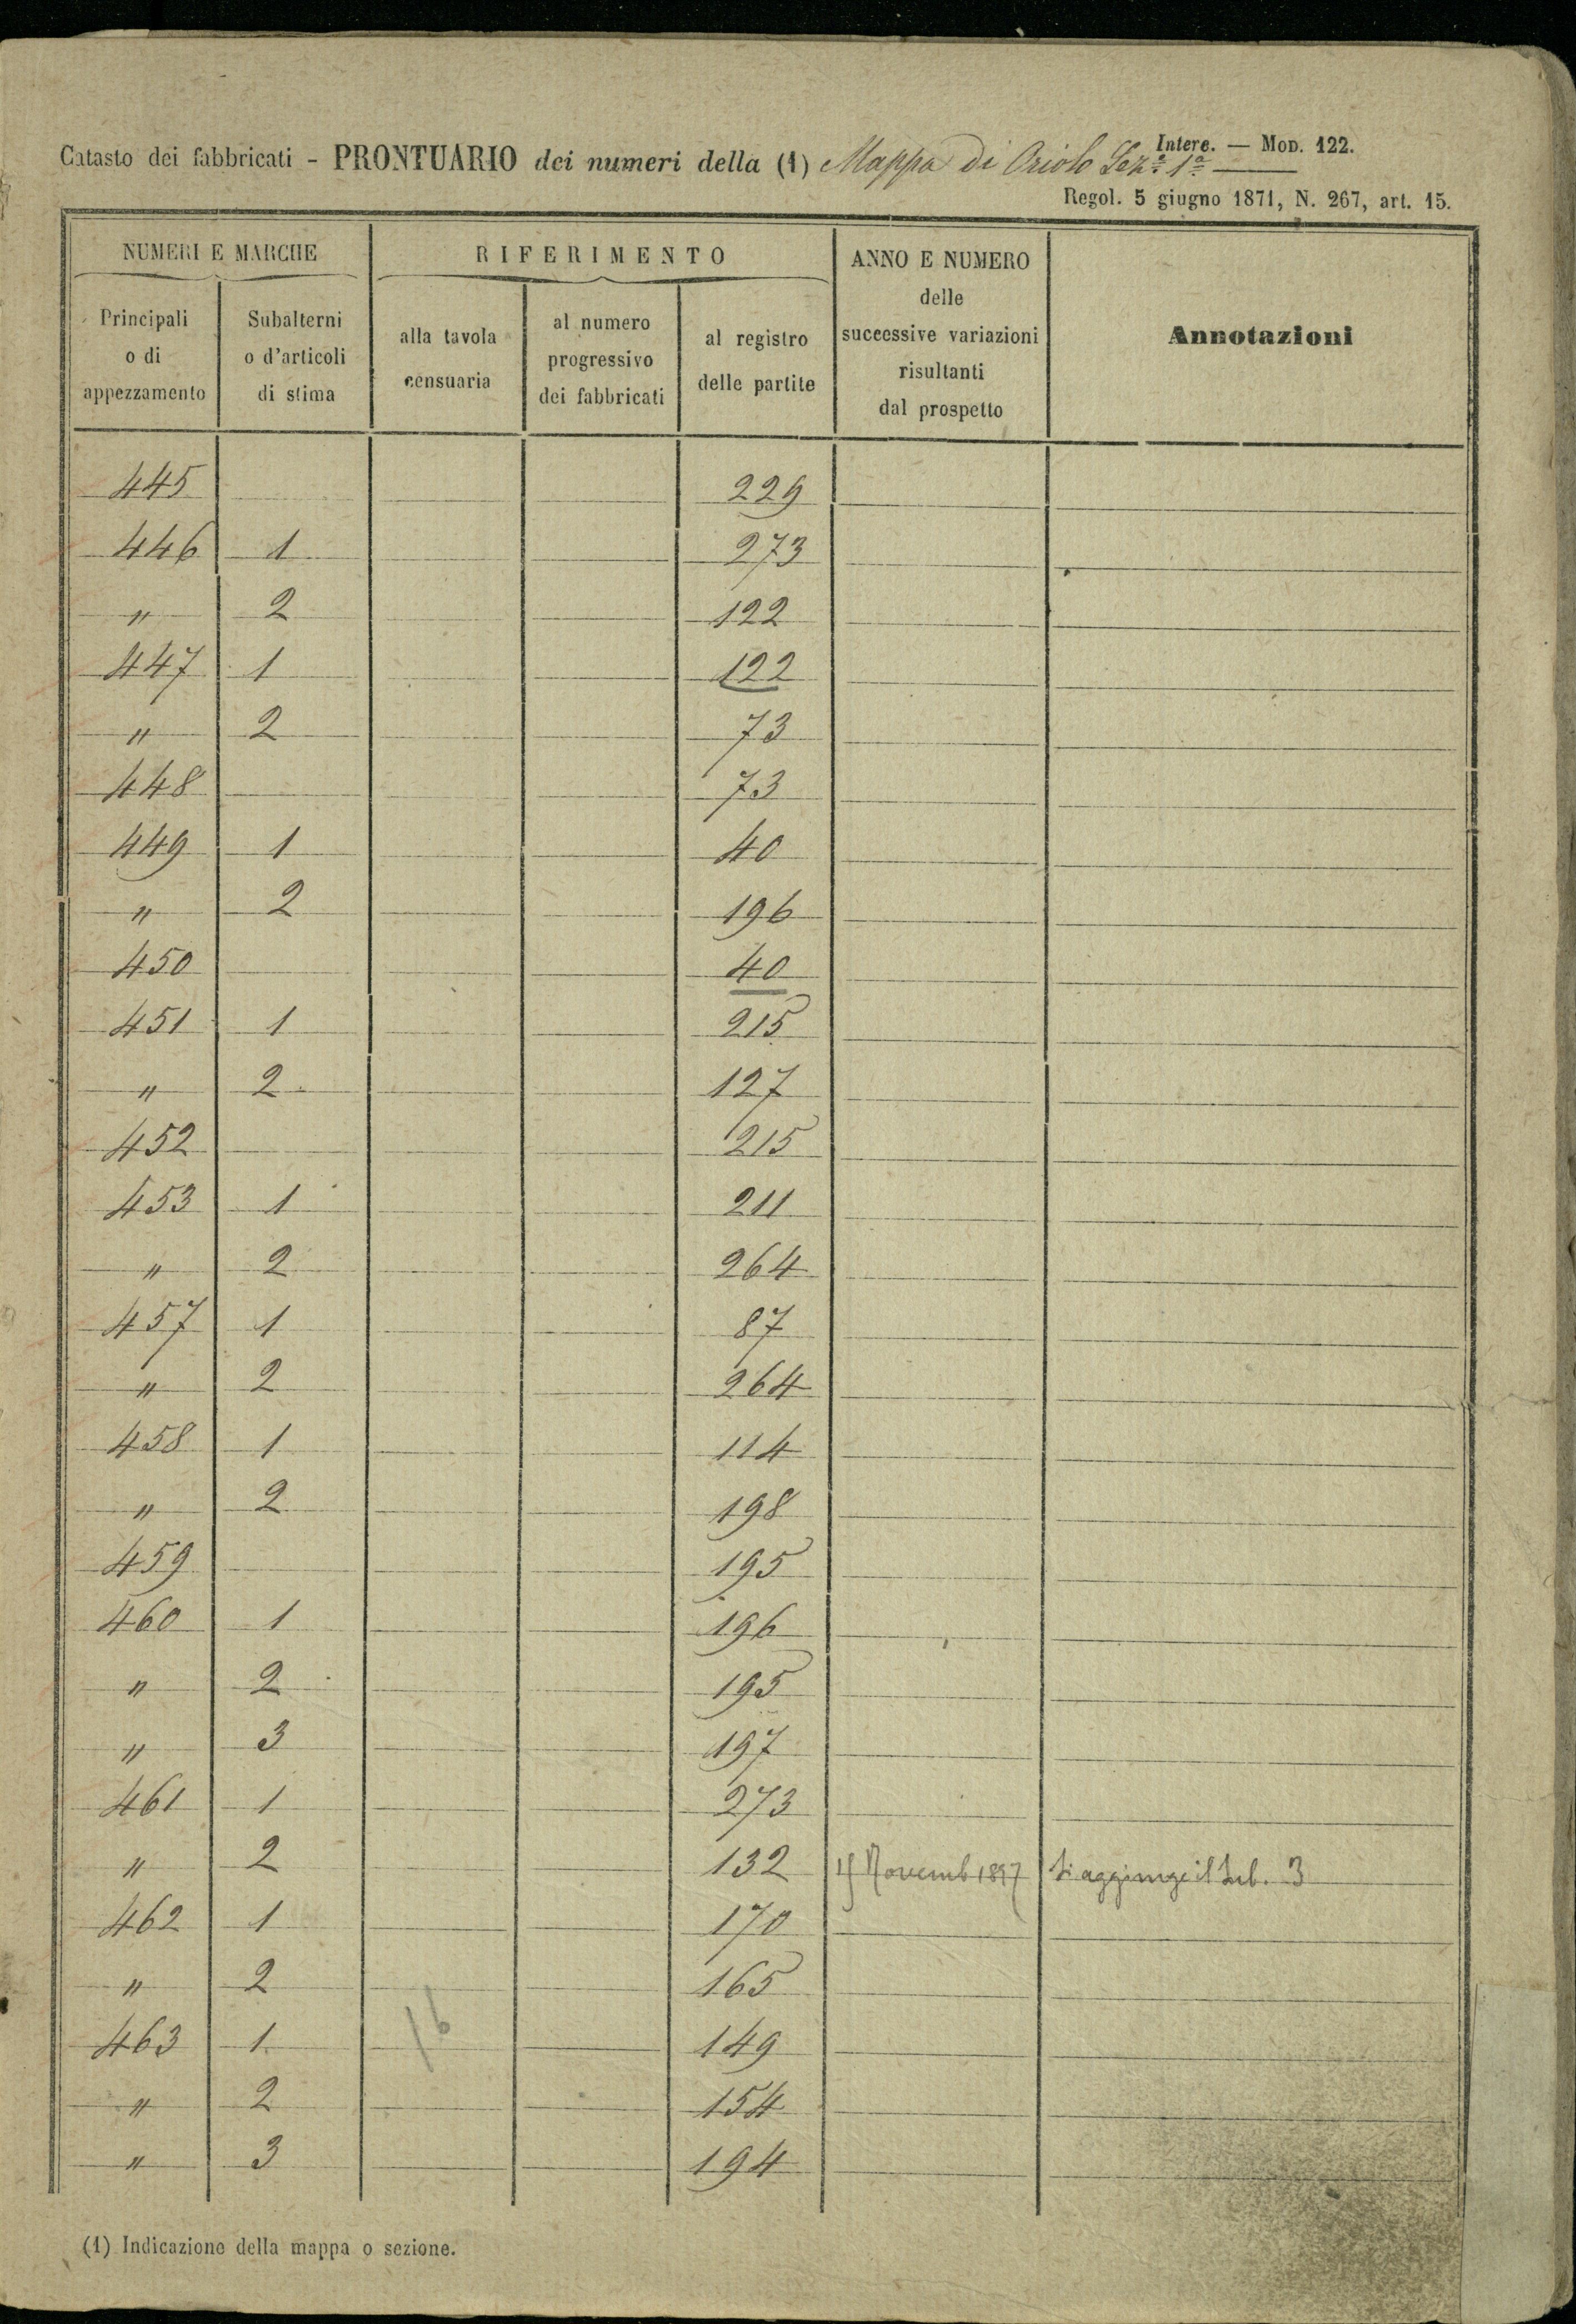 Interc. — Mod. 122.
Catasto dei fabbricati - PRONTUARIO dei numeri della (1) Mappa di Oriolo Sezᵉ 1ª
Regol. 5 giugno 1871, N. 267, art. 15.
NUMERI E MARCHE RIFERIMENTO ANNO E NUMERO delle successive variazioni risultanti dal prospetto Annotazioni
Principali o di appezzamento Subalterni o d'articoli di stima alla tavola censuaria al numero progressivo dei fabbricati al registro delle partite
445 229
446 1 273
" 2 122
447 1 122
" 2 73
448 73
449 1 40
" 2 196
450 40
451 1 215
" 2 127
452 215
453 1 211
" 2 264
457 1 87
" 2 264
458 1 114
" 2 198
459 195
460 1 196
" 2 195
" 3 197
461 1 273
" 2 132 Novemb 1897 Si aggiunge il Sub. 3
462 1 170
" 2 165
463 1 16 149
" 2 154
" 3 194
(1) Indicazione della mappa o sezione.